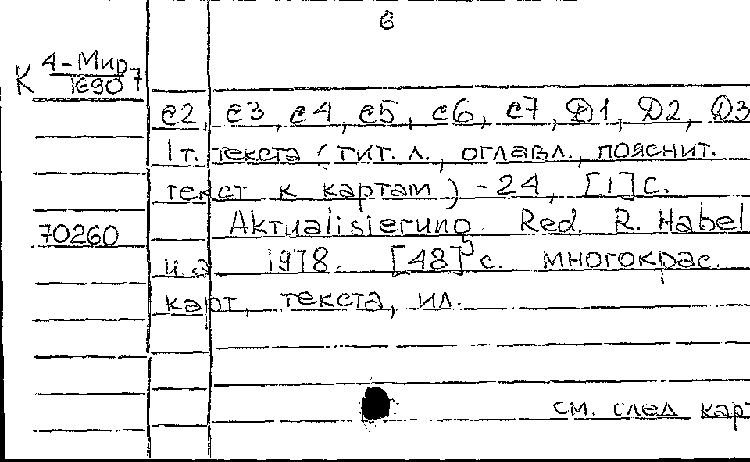 6
К 4-Мир
16907
C2, C3, C4, C5, C6, C7, D1, D2, D3
1 т. текста (тит. л., оглавл., пояснит.
текст к картам) - 24, [1] с.
70260 Aktualisierung. Red. R. Habel
u. a. 1978. [48] с. многокрас.
карт, текста, ил.
см. след. карт